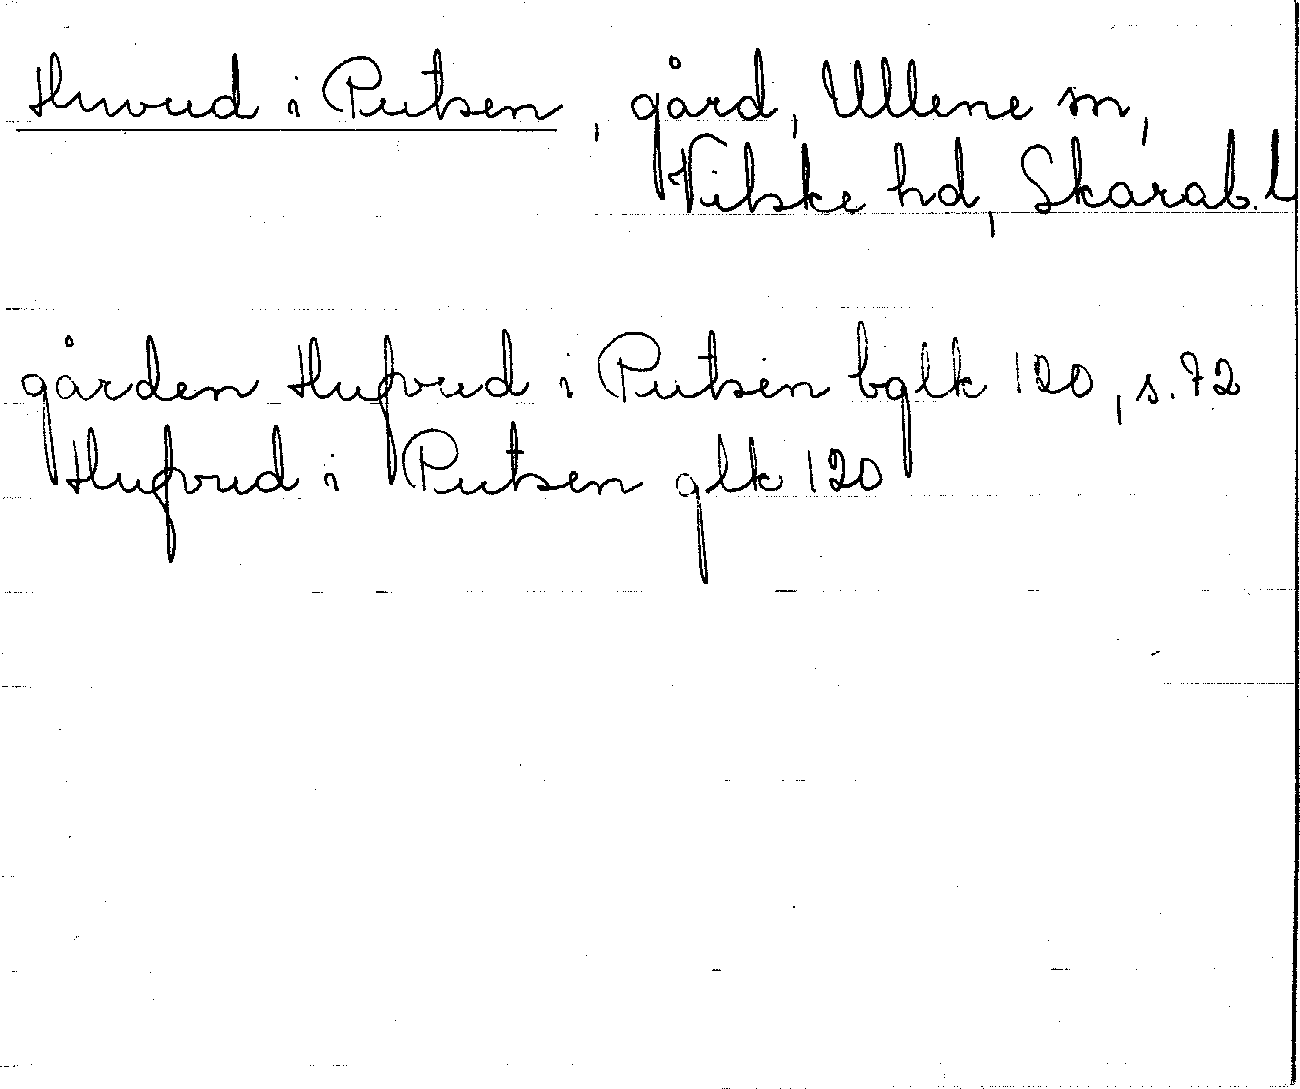 Huvud i Putsen, gård, Ullene sn,
Vilske hd, Skarab. l
gården Hufvud i Putsen bglk 120, s. 72
Hufvud i Putsen glk 120